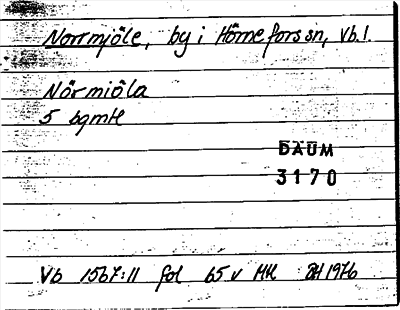 Norrmjöle, by i Hörnefors sn, Vb.l.
Nörmiöla
5 bqmtl
DAUM
3170
Vb 1567:11 fol 65 v MH 1976